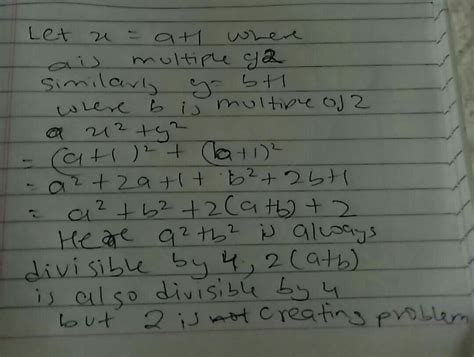 Let x = a+1 where
a is multiple of 2
similarly y = b+1
where b is multiple of 2
x² + y²
= (a+1)² + (b+1)²
= a² + 2a + 1 + b² + 2b+1
= a² + b² + 2(a+b) + 2
Here a²+b² is always
divisible by 4, 2(a+b)
is also divisible by 4
but 2 is creating problem